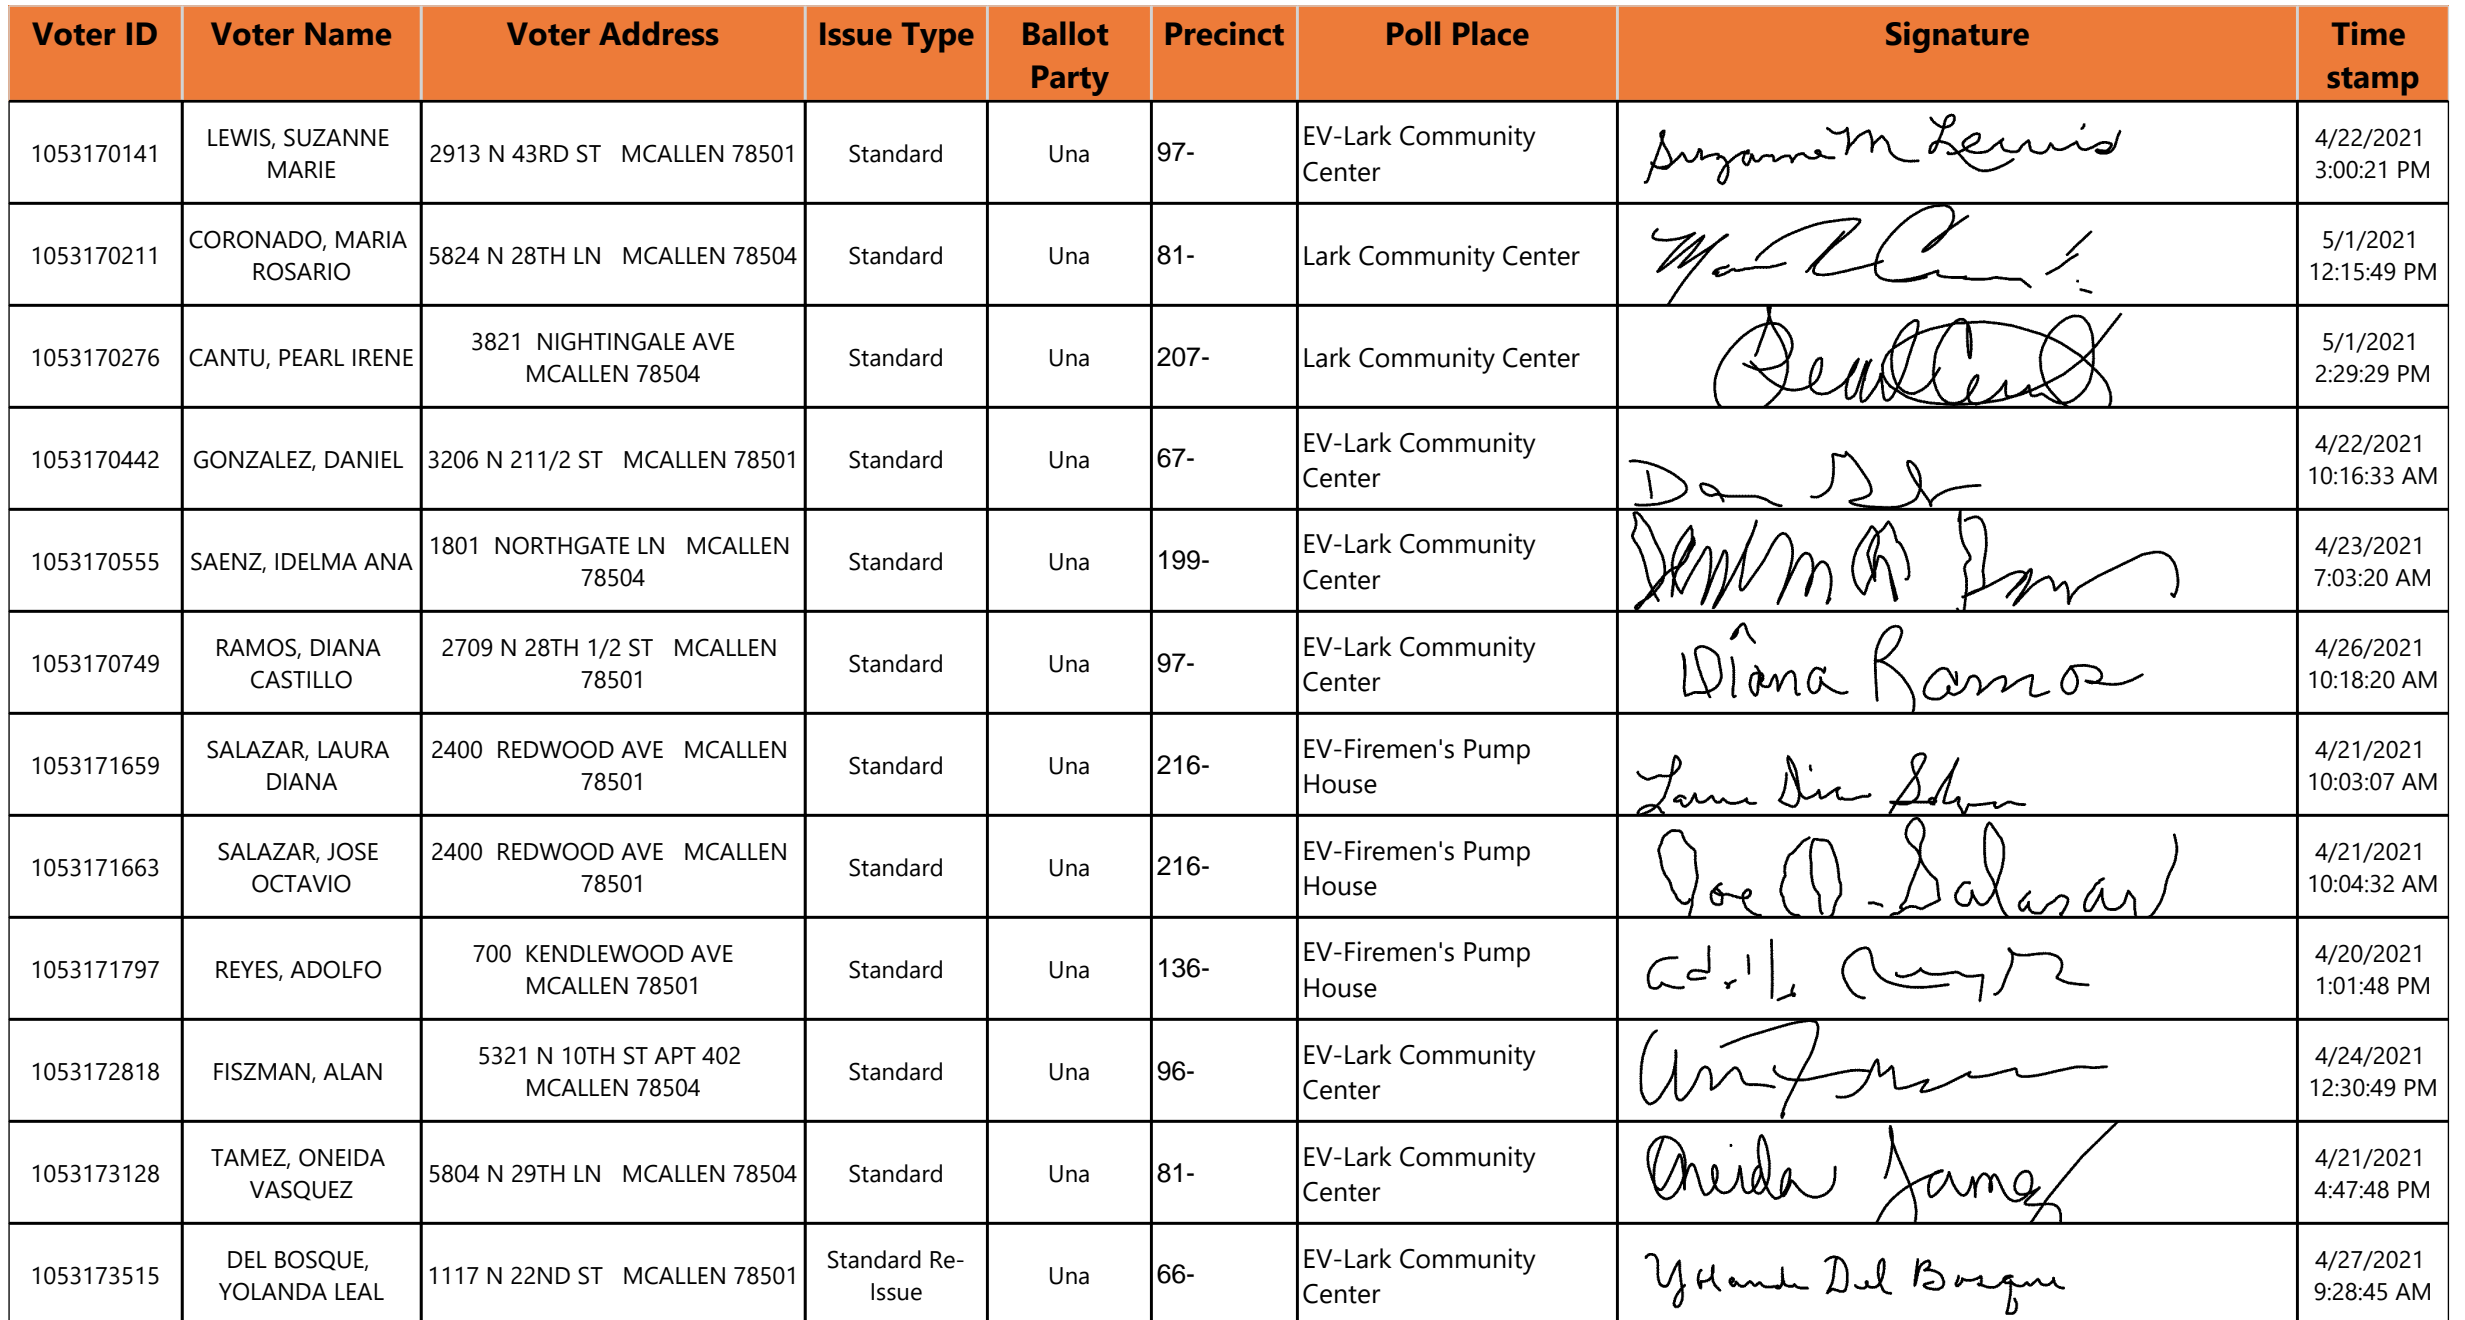 Voter ID Voter Name Voter Address Issue Type Ballot Party Precinct Poll Place Signature Time stamp
1053170141 LEWIS, SUZANNE MARIE 2913 N 43RD ST MCALLEN 78501 Standard Una 97- EV-Lark Community Center Suzanne M Lewis 4/22/2021 3:00:21 PM
1053170211 CORONADO, MARIA ROSARIO 5824 N 28TH LN MCALLEN 78504 Standard Una 81- Lark Community Center 5/1/2021 12:15:49 PM
1053170276 CANTU, PEARL IRENE 3821 NIGHTINGALE AVE MCALLEN 78504 Standard Una 207- Lark Community Center 5/1/2021 2:29:29 PM
1053170442 GONZALEZ, DANIEL 3206 N 211/2 ST MCALLEN 78501 Standard Una 67- EV-Lark Community Center 4/22/2021 10:16:33 AM
1053170555 SAENZ, IDELMA ANA 1801 NORTHGATE LN MCALLEN 78504 Standard Una 199- EV-Lark Community Center 4/23/2021 7:03:20 AM
1053170749 RAMOS, DIANA CASTILLO 2709 N 28TH 1/2 ST MCALLEN 78501 Standard Una 97- EV-Lark Community Center Diana Ramos 4/26/2021 10:18:20 AM
1053171659 SALAZAR, LAURA DIANA 2400 REDWOOD AVE MCALLEN 78501 Standard Una 216- EV-Firemen's Pump House 4/21/2021 10:03:07 AM
1053171663 SALAZAR, JOSE OCTAVIO 2400 REDWOOD AVE MCALLEN 78501 Standard Una 216- EV-Firemen's Pump House Joe O - Salazar 4/21/2021 10:04:32 AM
1053171797 REYES, ADOLFO 700 KENDLEWOOD AVE MCALLEN 78501 Standard Una 136- EV-Firemen's Pump House 4/20/2021 1:01:48 PM
1053172818 FISZMAN, ALAN 5321 N 10TH ST APT 402 MCALLEN 78504 Standard Una 96- EV-Lark Community Center 4/24/2021 12:30:49 PM
1053173128 TAMEZ, ONEIDA VASQUEZ 5804 N 29TH LN MCALLEN 78504 Standard Una 81- EV-Lark Community Center Oneida Tamez 4/21/2021 4:47:48 PM
1053173515 DEL BOSQUE, YOLANDA LEAL 1117 N 22ND ST MCALLEN 78501 Standard Re-Issue Una 66- EV-Lark Community Center Yolanda Del Bosque 4/27/2021 9:28:45 AM